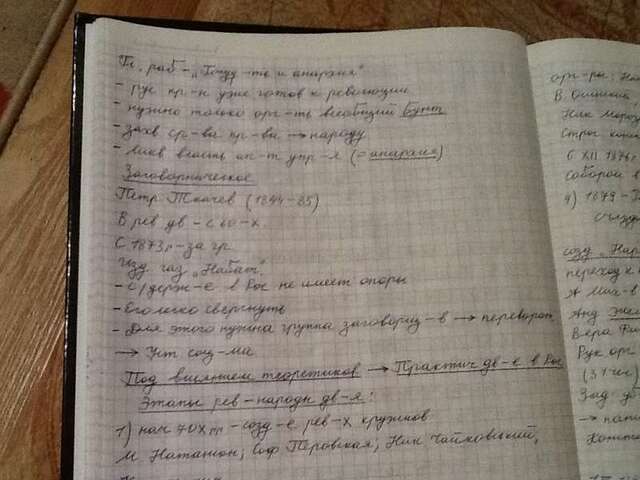 Гл. раб - „Госуд-ть и анархия"
- рус кр-н уже готов к революции
- нужно только орг-ть всеобщий бунт
- захв ср-ва пр-ва → народу
- ликв власть ап-т упр-я (= анархия)
Заговорщическое
Петр Ткачев (1844-85)
В рев дв - с 60-х
С 1873г - за гр.
Изд. газ „Набат".
- С/держ-е в Рос не имеет опоры
- Его легко свергнуть
- Для этого нужна группа заговорщ-в → переворот
→ соц-ма
Под влиянием теоретиков → Практич дв-е в Рос
Этапы рев-народн дв-я:
1) нач 70х гг - созд-е рев-х кружков
М. Натансон; Соф Перовская; Ник Чайковский;
орг-ры:
В. Осинский
Ник Мороз
С XII 1876г
Соборой в
4) 1879 -
съезд
созд „Нар
переход к
А Мих-в
Анд Жел
Вера Фи
Рук орг
Зад дв